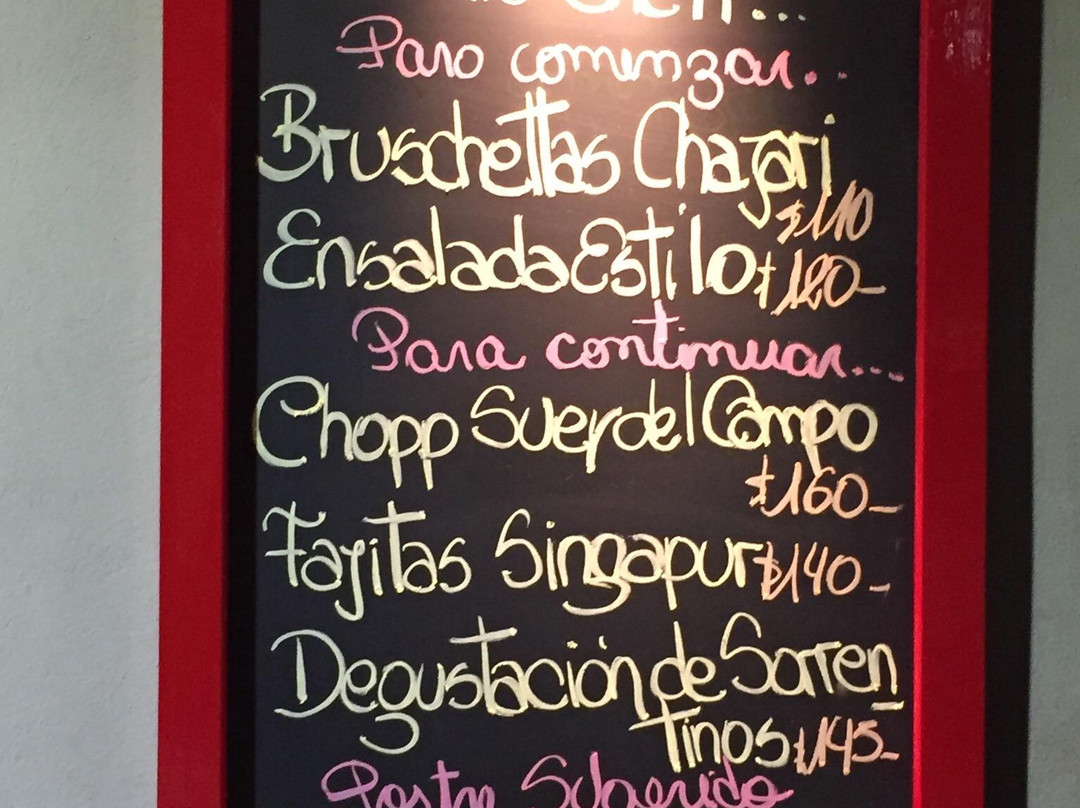 Para comenzar..
Bruschettas Chajari
$110
Ensalada Estilo $120-
Para continuar...
Chopp Suey del Campo
$160-
Fajitas Singapur $140-
Degustación de Sorren
tinos $145-
Postre Sugerido